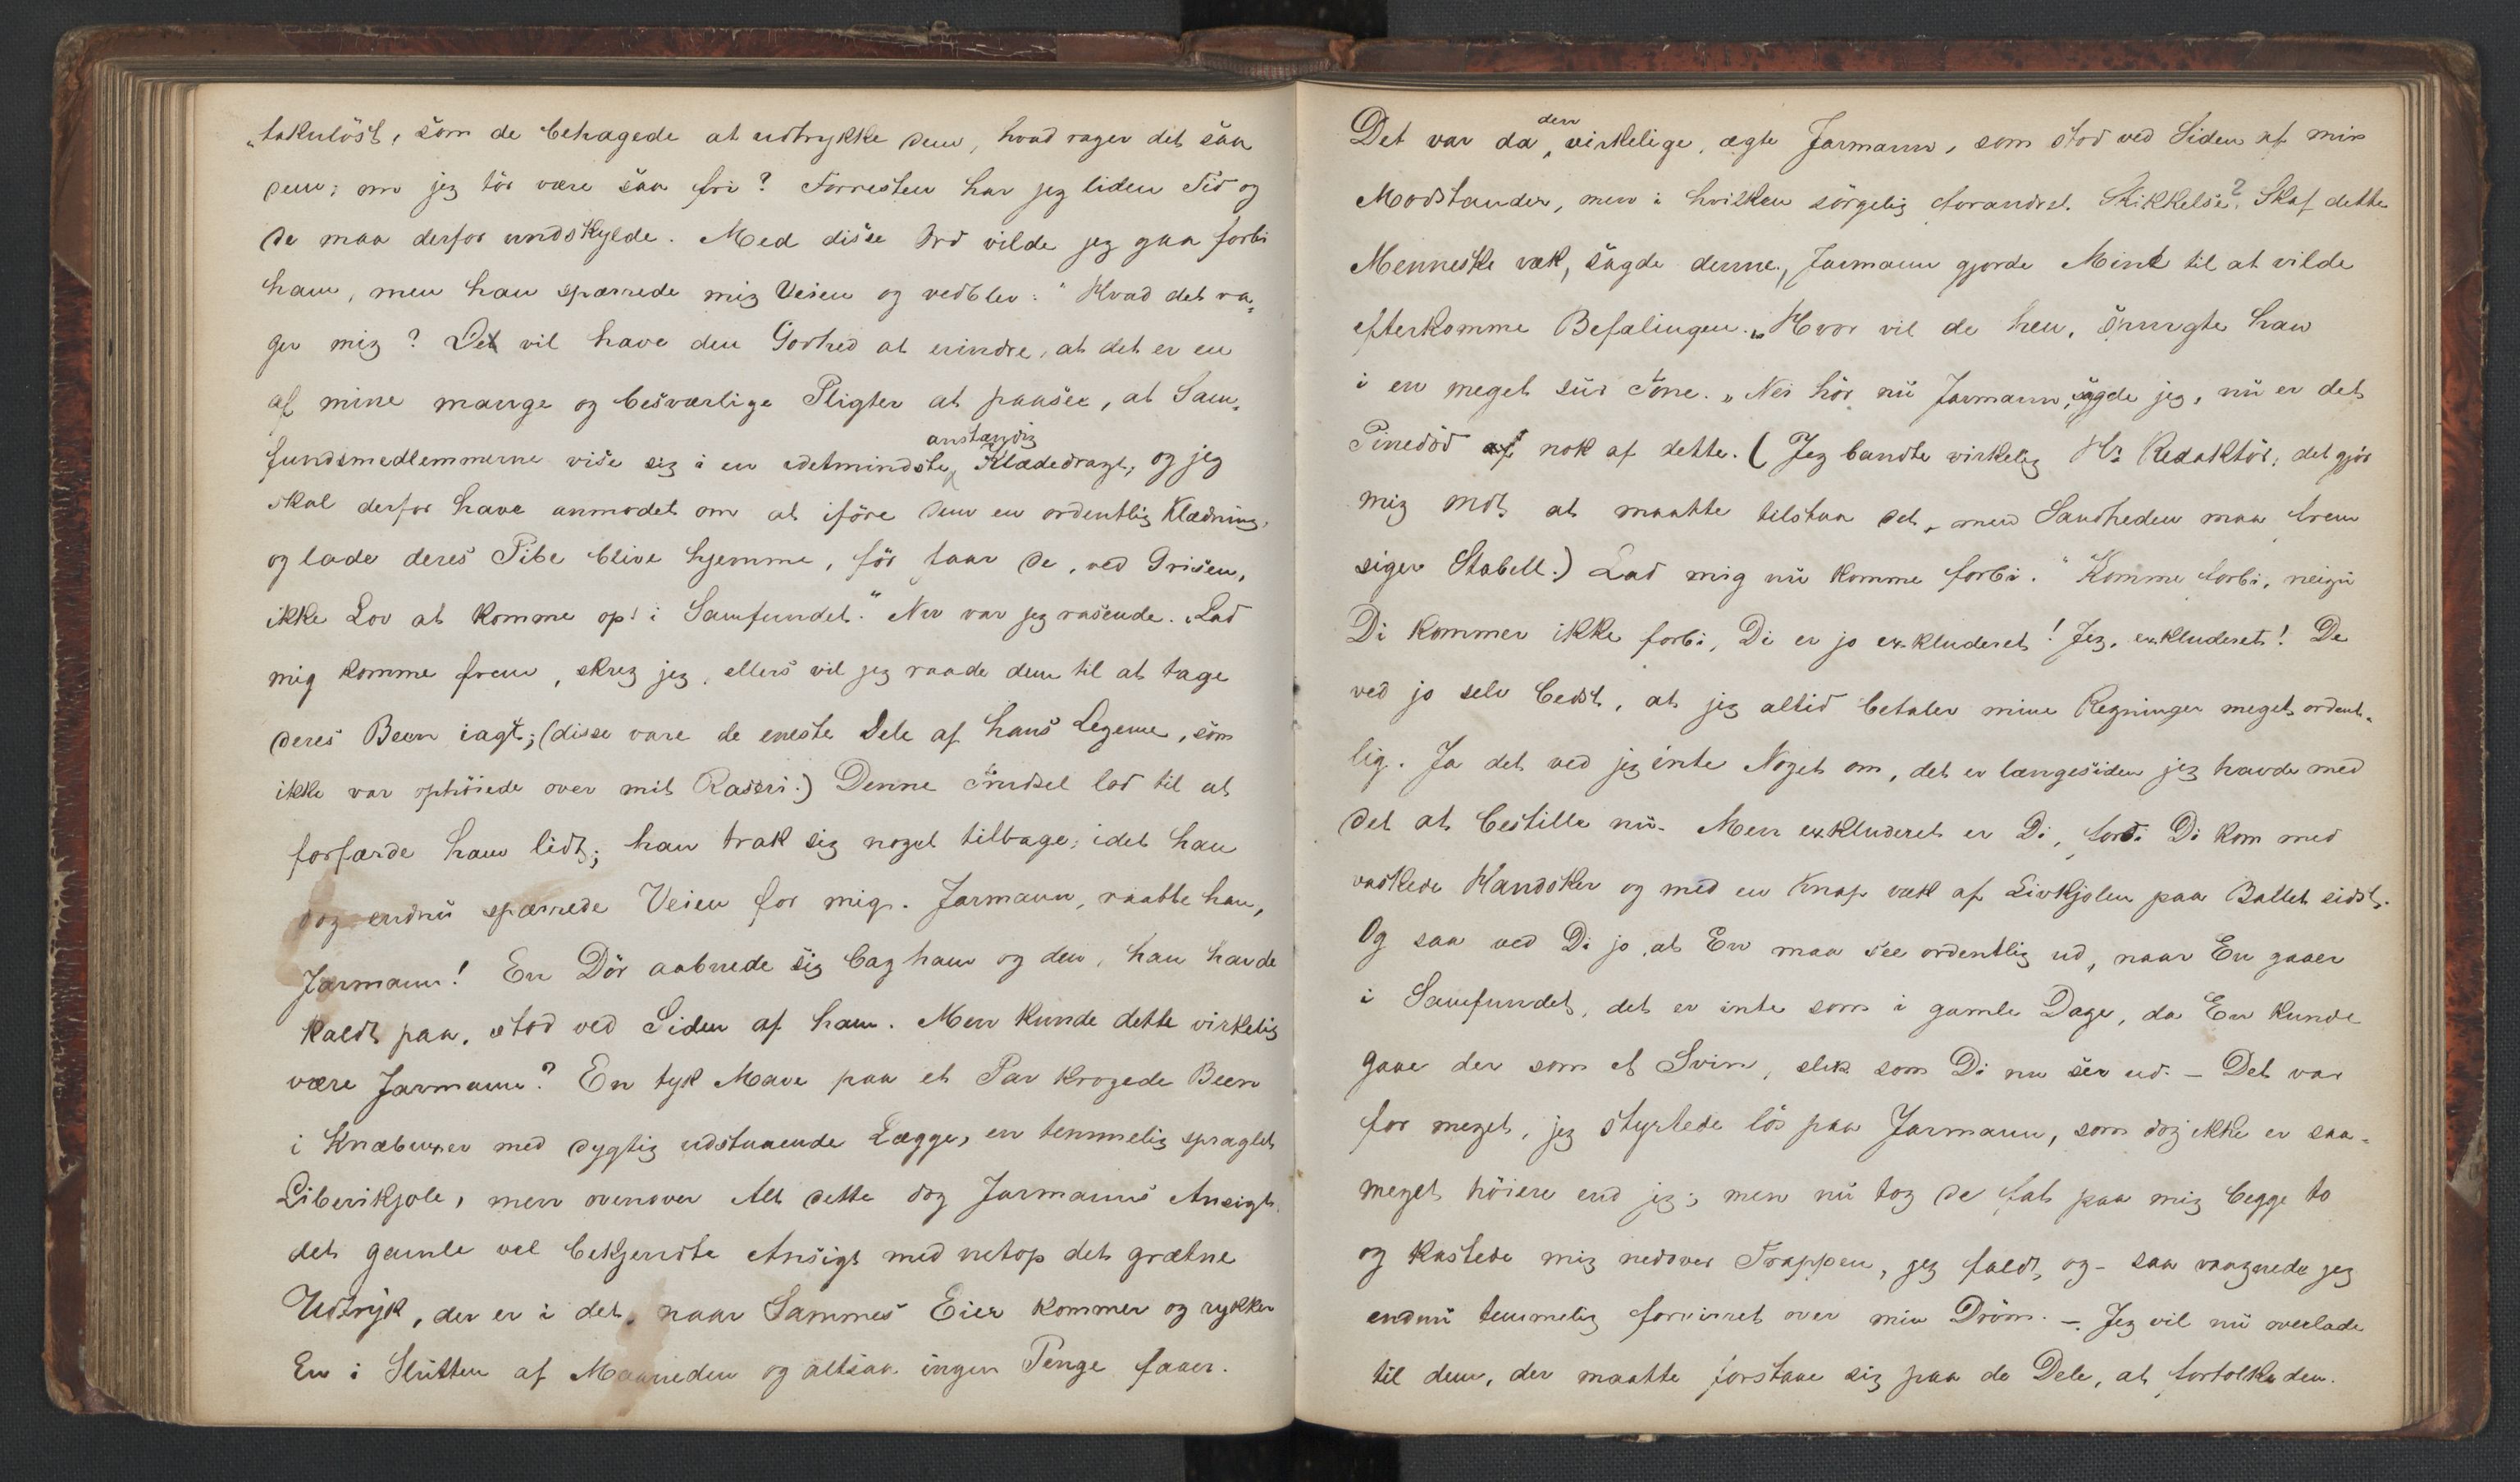 „takulöst, som de behagede at udtrykke dem, hvad rager det saa
dem; om jeg tör være saa fri? Forresten har jeg liden Tid og
de maa derfor undskylde. Med disse Ord vilde jeg gaa forbi
ham, men han spærrede mig Veien og vedblev: " Hvad det ra„
ger mig? De vil have den Godhed at erindre, at det er en
af mine mange og besværlige Pligter at paasee, at Sam„
fundsmedlemmerne vise sig i en idetmindste anstændig Klædedragt, og jeg
skal derfor have anmodet om at iföre dem en ordentlig Klædning,
og lade deres Pibe blive hjemme, för faar de, ved Grisen,
ikke Lov at komme op i Samfundet." Nu var jeg rasende. „Lad
mig komme frem, skreg jeg, ellers vil jeg raade dem til at tage
deres Been iagt; (disse vare de eneste Dele af hans Legeme, som
ikke var ophöiede over mit Raseri.) Denne Trudsel lod til at
forfærde ham lidt; han trak sig noget tilbage, idet han
dog endnu spærrede Veien for mig. Jarmann, raabte han,
Jarmann! En Dör aabnede sig bag ham og den, han havde
kaldt paa, stod ved Siden af ham. Men kunde dette virkelig
være Jarmann? En tyk Mave paa et Par krogede Been
i Knæbuxer med dygtig udstaaende Lægge, en temmelig spraglet
Liberikjole, men ovenover Alt dette dog Jarmanns Ansigt,
det gamle vel bekjendte Ansigt med netop det grætne
Udtryk, der er i det, naar Sammes Eier kommer og rykker
En i Slutten af Maaneden og altsaa ingen Penge faaer.
Det var da den virkelige, ægte Jarmann, som stod ved Siden af min
Modstander, men i hvilken sörgelig forandret Skikkelse? Skaf dette
Menneske væk, sagde denne, Jarmann gjorde Mine til at vilde
efterkomme Befalingen. „Hvor vil de hen, snurgte han
i en meget sur Tone. „Nei hör nu Jarmann, sagde jeg, nu er det
Pinedöd nok af dette. (Jeg bandte virkelig Hr Redaktör, det gjör
mig ondt at maatte tilstaa det, men Sandheden maa frem
siger Stabell.) Lad mig nu komme forbi." "Komme forbi, neigu
Di kommer ikke forbi, Di er jo exkluderet! Jeg, exkluderet! De
ved jo selv bedst, at jeg altid betaler mine Regninger meget ordent„
lig. Ja det ved jeg inte Noget om, det er længesiden jeg havde med
det at bestille nu. Men exkluderet er Di, fordi Di kom med
vaskede Handsker og med en Knap væk af Livkjolen paa Ballet sidst.
Og saa ved Di jo, at En maa see ordentlig ud, naar En gaaer
i Samfundet, det er inte som i gamle Dage, da En kunde
gaae der som et Svin, slik som Di nu ser ud. – Det var
for meget, jeg styrtede lös paa Jarmann, som dog ikke er saa-
meget höiere end jeg; men nu tog de fat paa mig begge to
og kastede mig nedover Trappen, jeg faldt, og – saa vaagnede jeg
endnu temmelig forvirret over min Dröm. –. Jeg vil nu overlade
til dem, der maatte forstaae sig paa de Dele, at fortolke den.